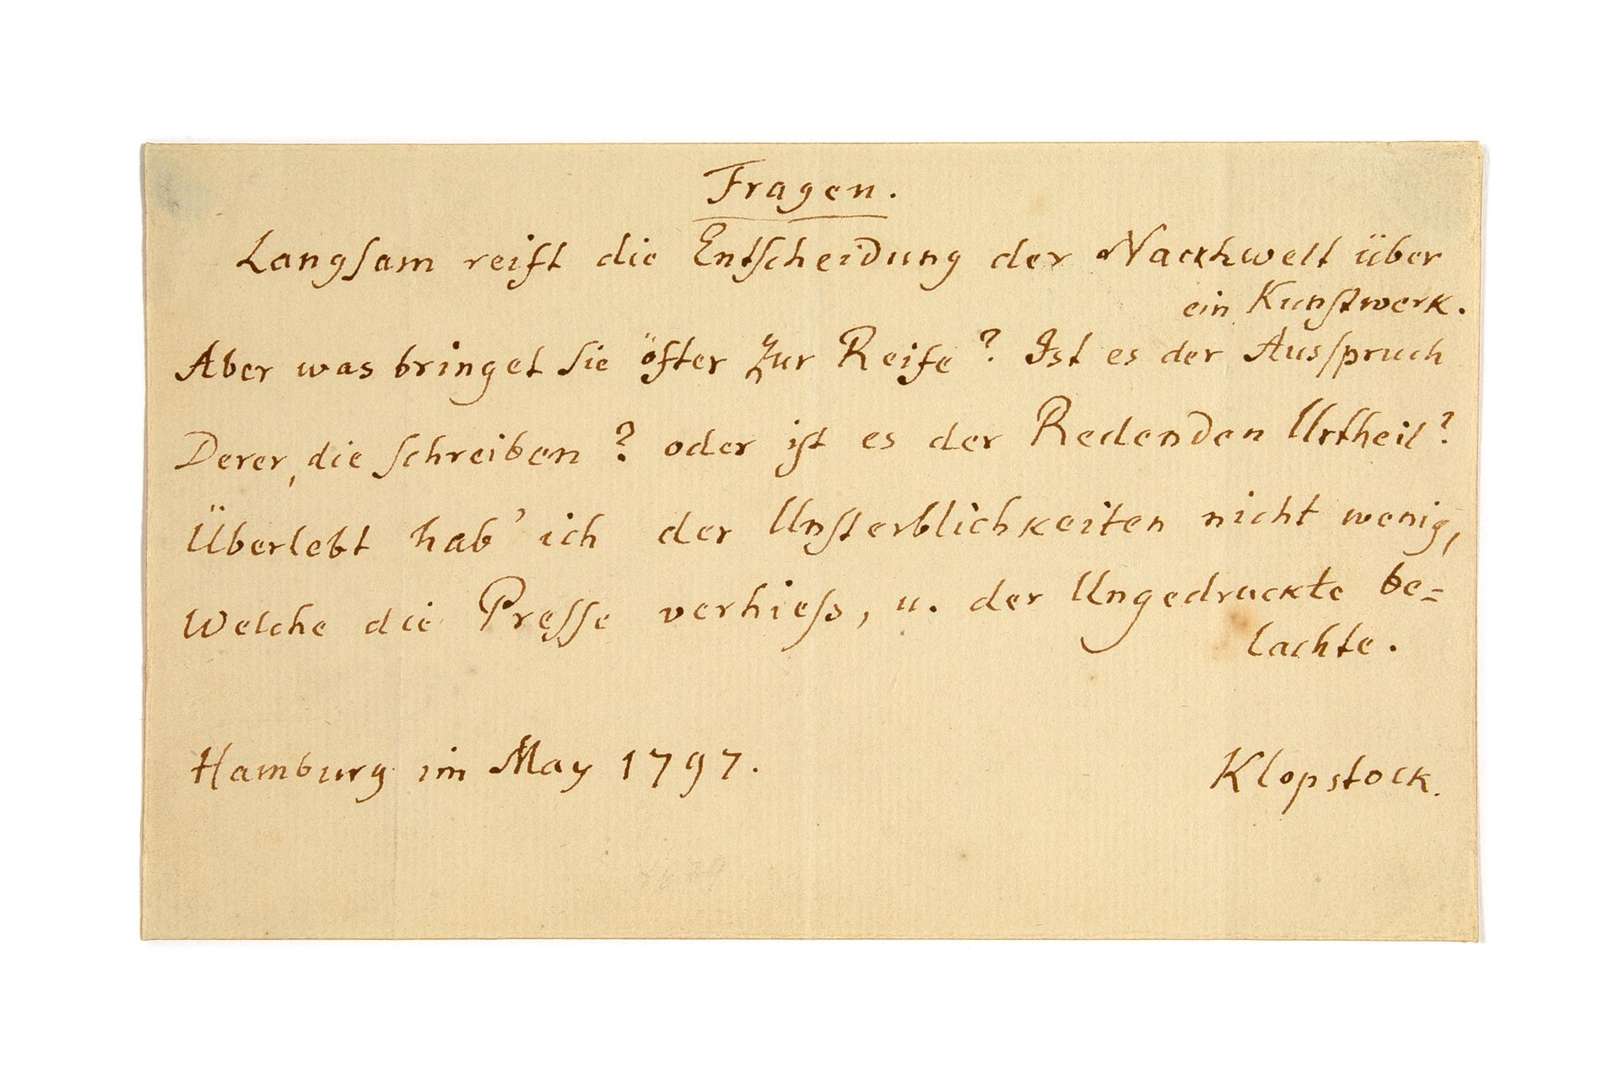 Fragen.
Langſam reift die Entſcheidung der Nachwelt über
ein Kunſtwerk.
Aber was bringet ſie öfter zur Reife? Ist es der Ausſpruch
Derer, die ſchreiben? oder iſt es der Redenden Urtheil?
Überlebt hab' ich der Unſterblichkeiten nicht wenig,
Welche die Preſſe verhieſs, u. der Ungedruckte be=
lachte.
Hamburg im May 1797.
Klopstock.